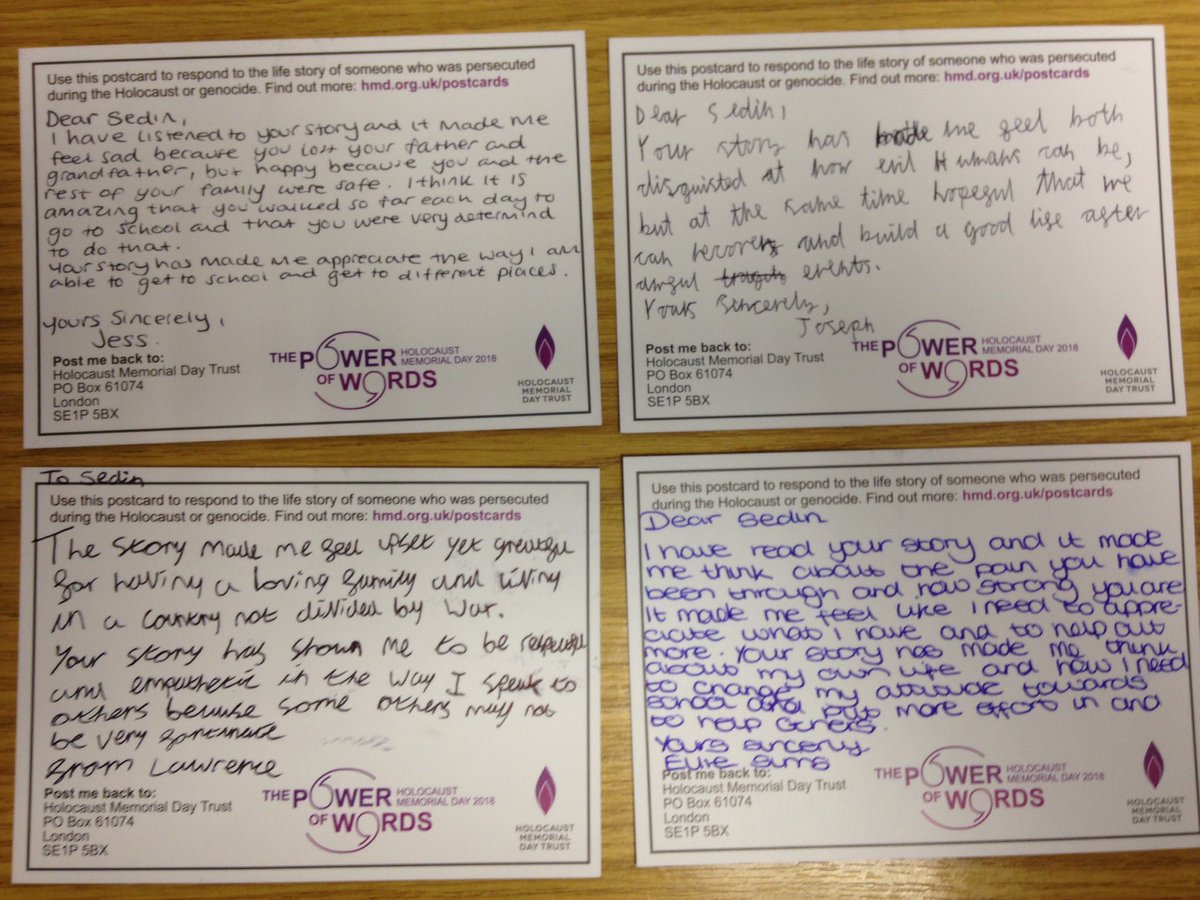 Use this postcard to respond to the life story of someone who was persecuted
during the Holocaust or genocide. Find out more: hmd.org.uk/postcards
Dear Sedin,
I have listened to your story and it made me
feel sad because you lost your father and
grandfather, but happy because you and the
rest of your family were safe. I think it is
amazing that you walked so far each day to
go to school and that you were very determind
to do that.
Your story has made me appreciate the way I am
able to get to school and get to different places.
Yours Sincerely,
Jess.
Post me back to:
Holocaust Memorial Day Trust
PO Box 61074
London
SE1P 5BX
THE POWER OF WORDS
HOLOCAUST
MEMORIAL DAY 2018
HOLOCAUST
MEMORIAL
DAY TRUST
Use this postcard to respond to the life story of someone who was persecuted
during the Holocaust or genocide. Find out more: hmd.org.uk/postcards
Dear Sedin,
Your story has made me feel both
disgusted at how evil Humans can be,
but at the same time hopeful that we
can recover and build a good life after
awful events.
Yours Sincerely,
Joseph
Post me back to:
Holocaust Memorial Day Trust
PO Box 61074
London
SE1P 5BX
THE POWER OF WORDS
HOLOCAUST
MEMORIAL DAY 2018
HOLOCAUST
MEMORIAL
DAY TRUST
To Sedin
Use this postcard to respond to the life story of someone who was persecuted
during the Holocaust or genocide. Find out more: hmd.org.uk/postcards
The story made me feel upset yet greatful
for having a loving family and living
in a country not divided by war.
Your story has shown me to be respectful
and empathetic in the way I speak to
others because some others may not
be very fortunate
from Lawrence
Post me back to:
Holocaust Memorial Day Trust
PO Box 61074
London
SE1P 5BX
THE POWER OF WORDS
HOLOCAUST
MEMORIAL DAY 2018
HOLOCAUST
MEMORIAL
DAY TRUST
Use this postcard to respond to the life story of someone who was persecuted
during the Holocaust or genocide. Find out more: hmd.org.uk/postcards
Dear Sedin
I have read your story and it made
me think about the pain you have
been through and how strong you are
It made me feel like I need to appre-
ciate what I have and to help out
more. Your story has made me think
about my own life and how I need
to change my attitude towards
school and put more effort in and
to help others.
Yours sincerly
Sims
Post me back to:
Holocaust Memorial Day Trust
PO Box 61074
London
SE1P 5BX
THE POWER OF WORDS
HOLOCAUST
MEMORIAL DAY 2018
HOLOCAUST
MEMORIAL
DAY TRUST